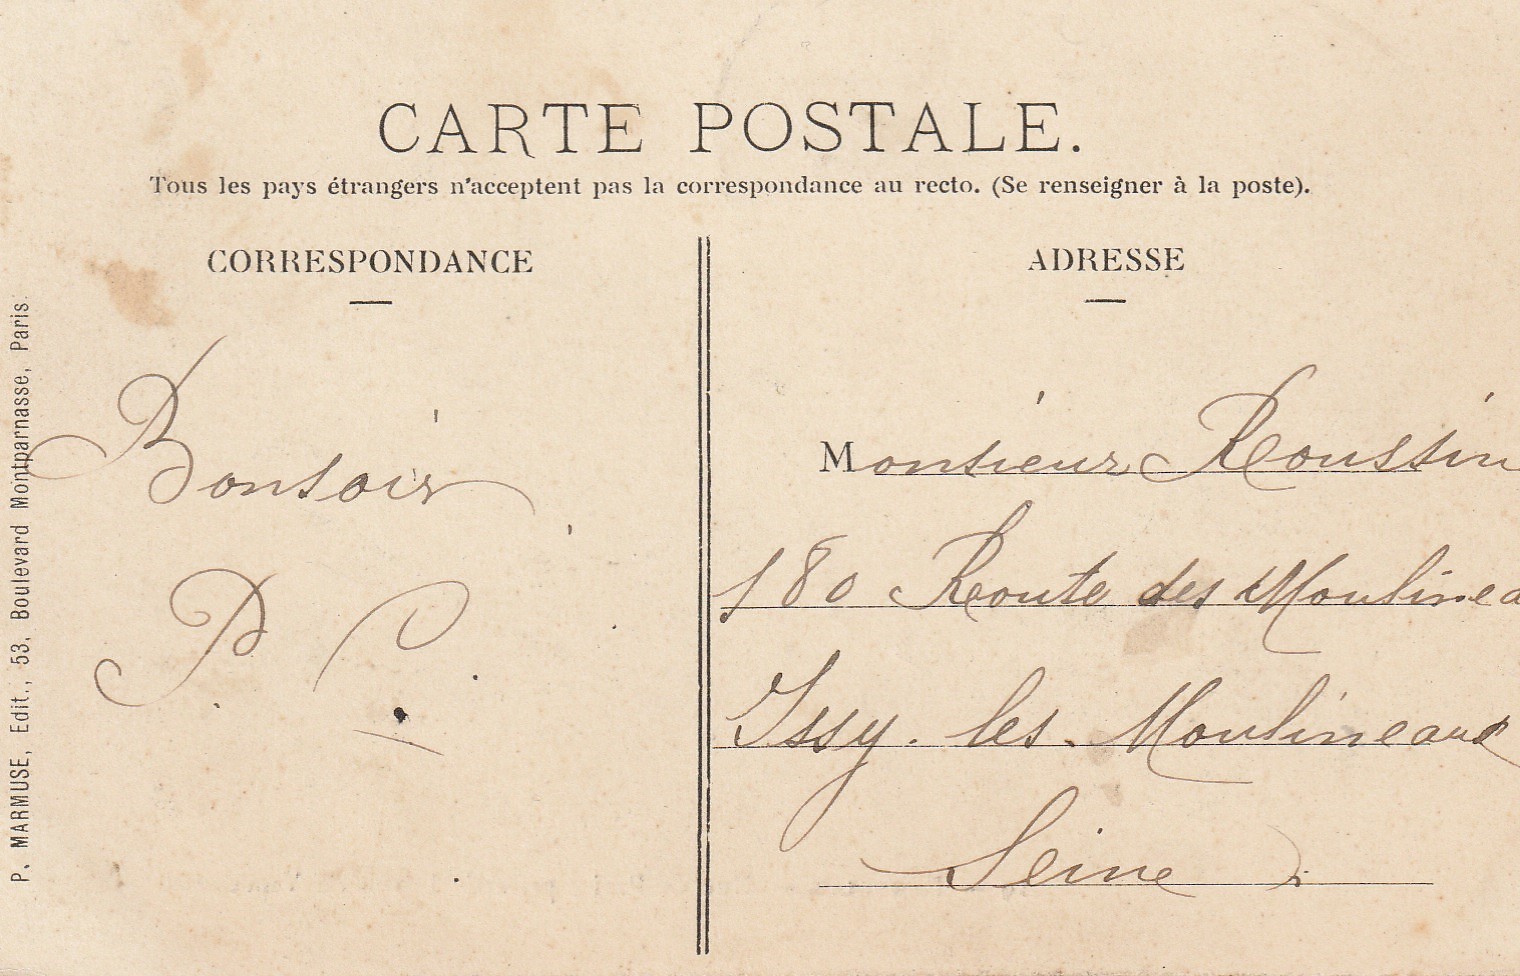 CARTE POSTALE.
Tous les pays étrangers n'acceptent pas la correspondance au recto. (Se renseigner à la poste).
CORRESPONDANCE
Bonsoir
P. C.
ADRESSE
Monsieur Roussin
180 Route des Moulinea
Issy. les. Moulineaux
Seine
P. MARMUSE, Edit., 53, Boulevard Montparnasse, Paris.